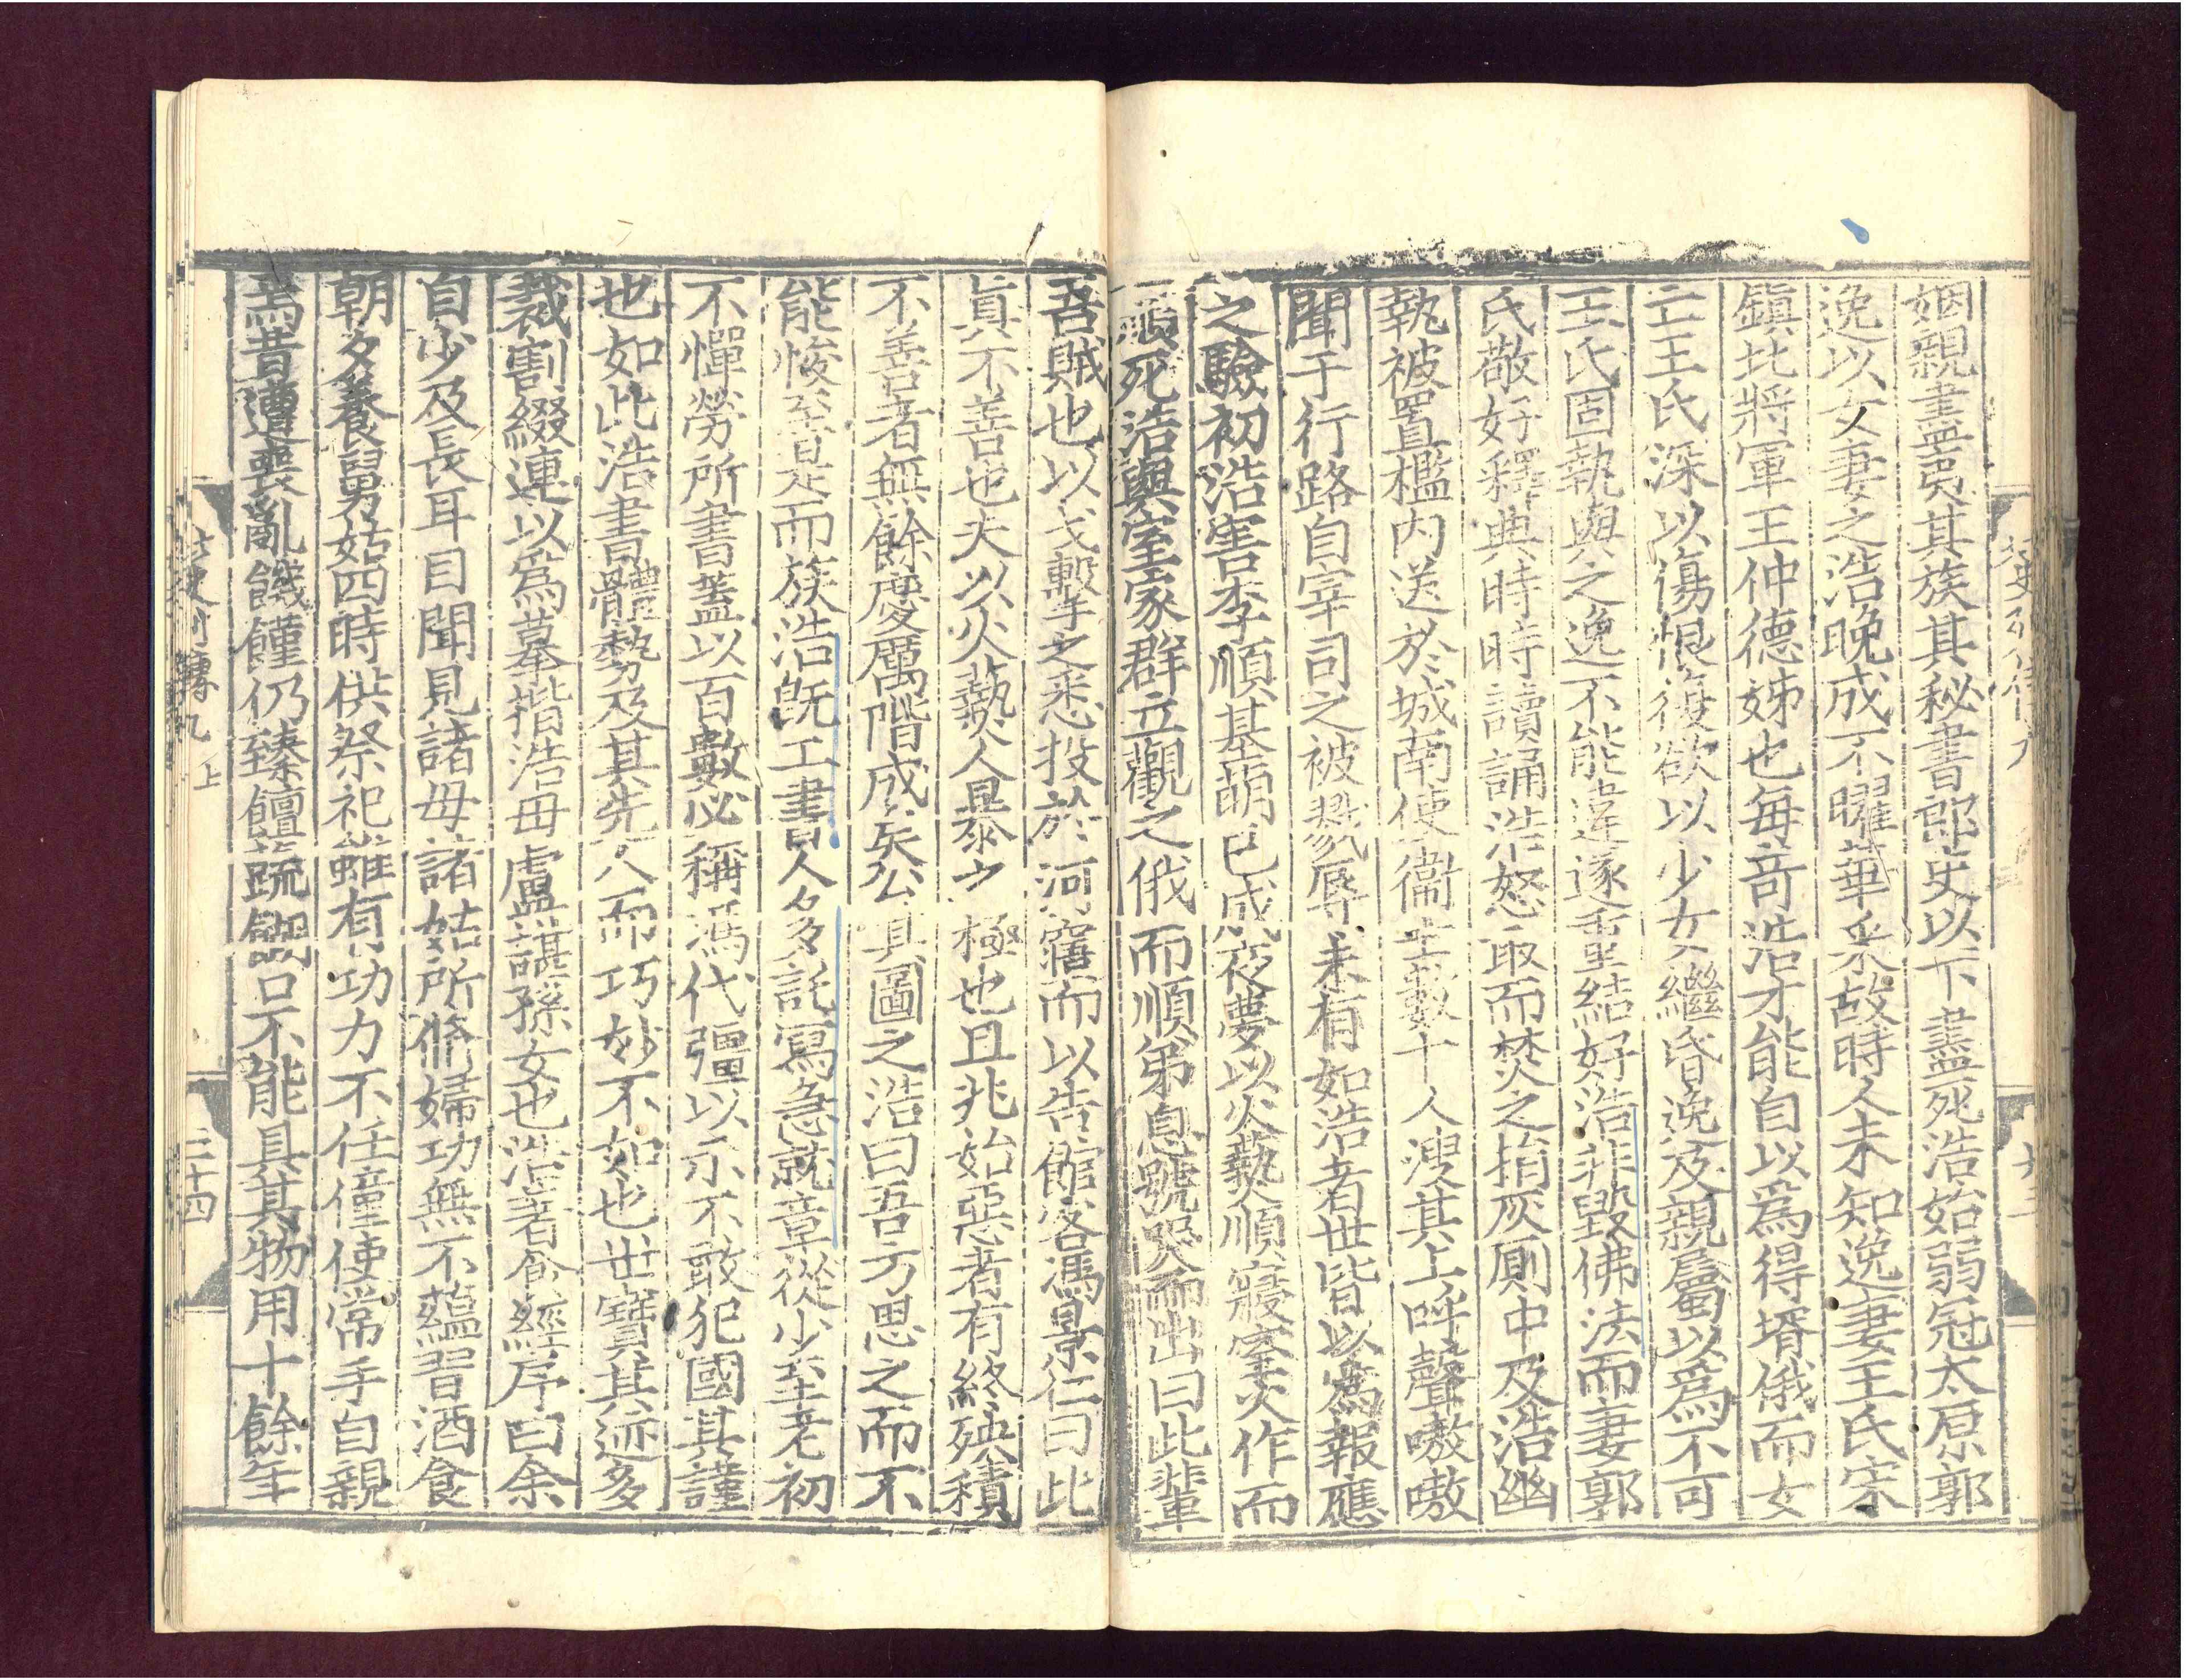 姻親盡夷其族其秘書郎吏以下盡死浩始弱冠太原郭
逸以女妻之浩晚成不曜華采故時人未知逸妻王氏宋
鎮北將軍王仲德姊也每奇浩才能自以爲得壻俄而女
亡王氏深以傷恨復欲以少女繼昏逸及親屬以爲不可
王氏固執與之逸不能違遂重結好浩非毀佛法而妻郭
氏敬好釋典時時讀誦浩怒取而焚之捐灰厠中及浩幽
執被置檻内送於城南使衞士數十人溲其上呼聲嗷嗷
聞于行路自宰司之被戮辱未有如浩者世皆以爲報應
之驗初浩害李順基萌已成夜夢以火爇順寢室火作而
順死浩與室家群立觀之俄而順弟息號哭而出曰此輩
吾賊也以戈擊之悉投於河寤而以告館客馮景仁曰此
眞不善也夫以火爇人暴之極也且兆始惡者有終殃積
不善者無餘慶厲階成矣公其圖之浩曰吾方思之而不
能悛至是而族浩旣工書人多託寫急就章從少至老初
不憚勞所書蓋以百數必稱馮代彊以示不敢犯國其謹
也如此浩書體勢及其先人而巧妙不如也世寶其迹多
裁割綴連以爲摹揩浩母盧諶孫女也浩著食經序曰余
自少及長耳目聞見諸母諸姑所脩婦功無不蘊習酒食
朝夕養舅姑四時供祭祀雖有功力不任僮使常手自親
焉昔遭喪亂饑饉仍臻饘蔬餬口不能具其物用十餘年
北史列傳九上
三十四